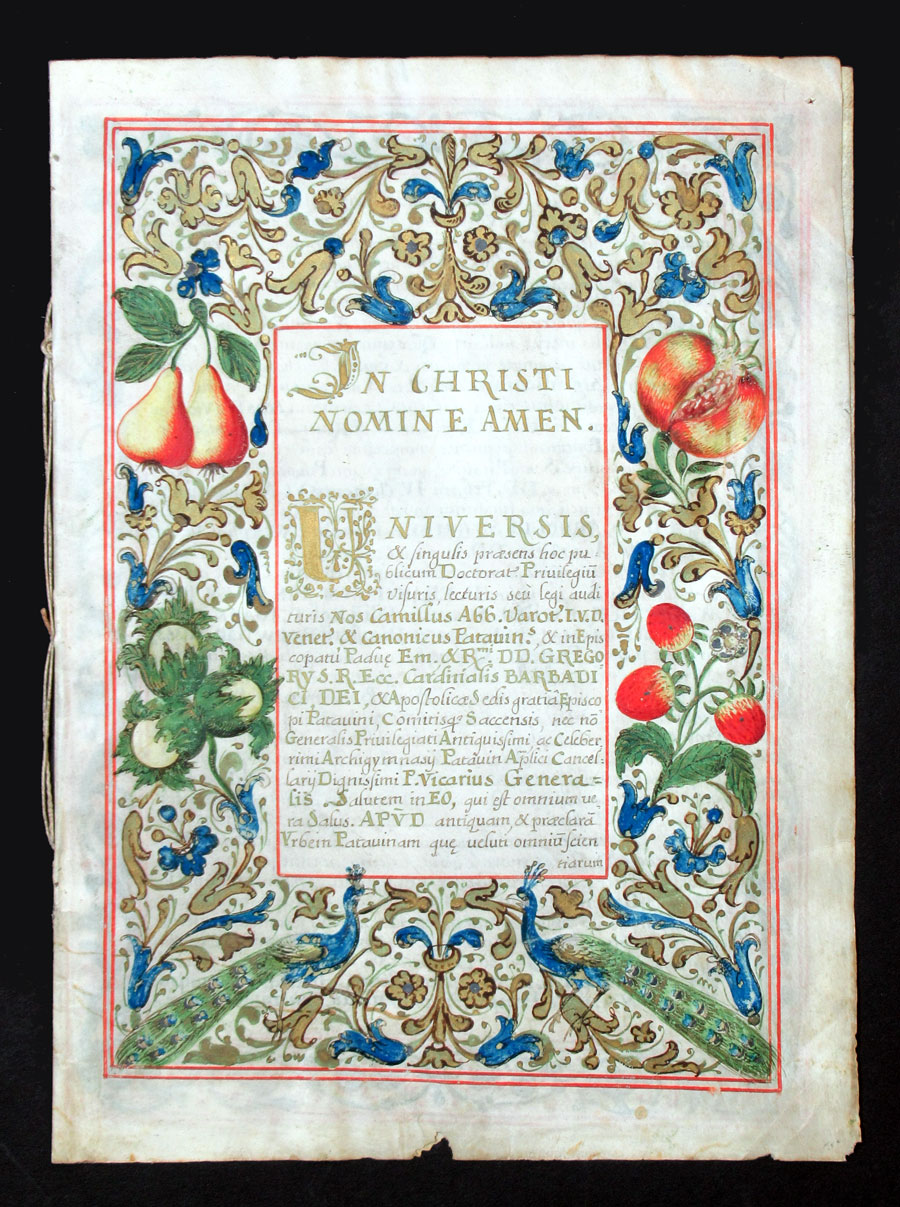 IN CHRISTI
NOMINE AMEN.
UNIVERSIS,
& singulis præsens hoc pu-
blicum Doctorat. Privilegiũ
visuris, lecturis seu legi audi
turis Nos Camillus Abb. Varot.s I.V.D.
Venet.s & Canonicus Patavin.s, & in Epis
copatu Paduę Em. & R.mi DD. GREGO
RY S. R. Ecc. Cardinalis BARBADI
CI, DEI, & Apostolicæ Sedis gratia Episco
pi Patavini, Comitisq; Saccensis, nec nõ
Generalis Privilegiati Antiquissimi ac Celeber-
rimi Archigymnasij Patavin Aplici Cancel-
larij Dignissimi P. Vicarius Genera=
lis Salutem in EO, qui est omnium ve
ra Salus. APṼD antiquam, & præclarã
Vrbem Patavinam quę veluti omniũ scien
tiarum